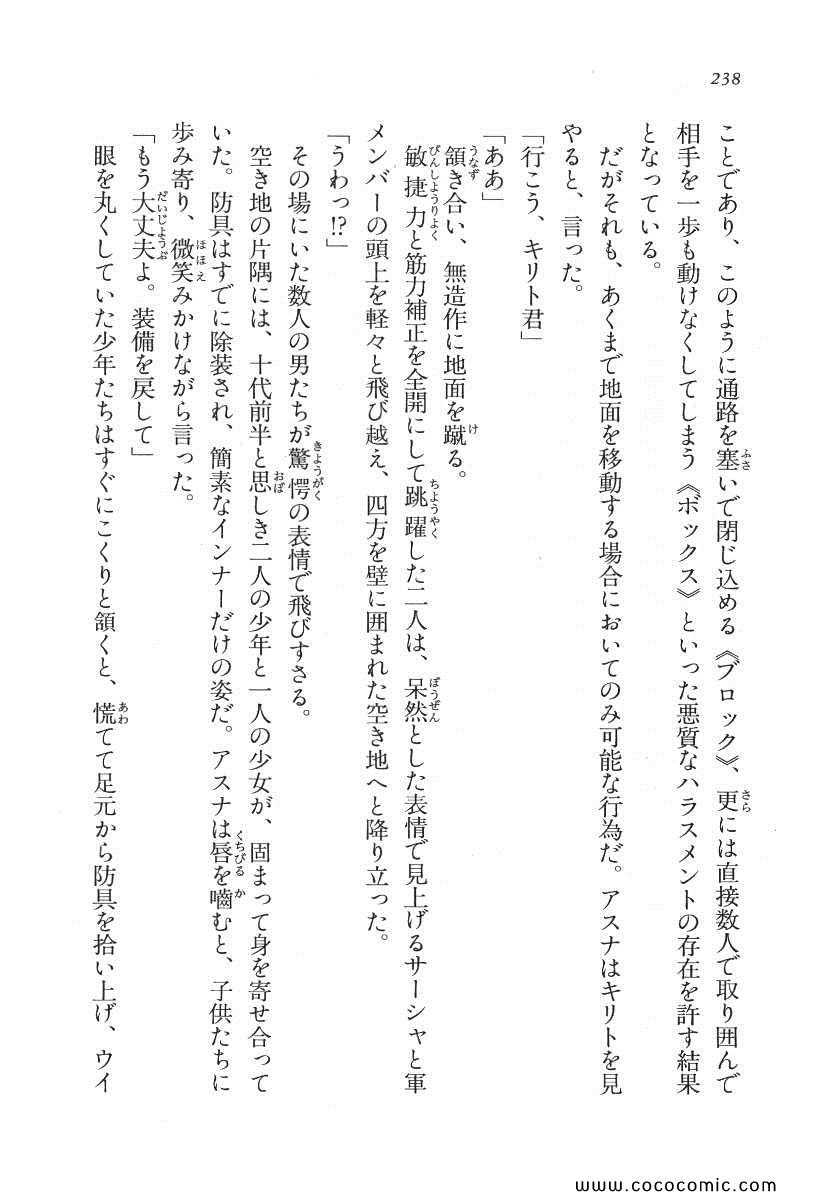 238
ことであり、このように通路を塞いで閉じ込める《ブロック》、更には直接数人で取り囲んで
相手を一歩も動けなくしてしまう《ボックス》といった悪質なハラスメントの存在を許す結果
となっている。
だがそれも、あくまで地面を移動する場合においてのみ可能な行為だ。アスナはキリトを見
やると、言った。
「行こう、キリト君」
「ああ」
頷き合い、無造作に地面を蹴る。
敏捷力と筋力補正を全開にして跳躍した二人は、呆然とした表情で見上げるサーシャと軍
メンバーの頭上を軽々と飛び越え、四方を壁に囲まれた空き地へと降り立った。
「うわっ!?」
その場にいた数人の男たちが驚愕の表情で飛びすさる。
空き地の片隅には、十代前半と思しき二人の少年と一人の少女が、固まって身を寄せ合って
いた。防具はすでに除装され、簡素なインナーだけの姿だ。アスナは唇を嚙むと、子供たちに
歩み寄り、微笑みかけながら言った。
「もう大丈夫よ。装備を戻して」
眼を丸くしていた少年たちはすぐにこくりと頷くと、慌てて足元から防具を拾い上げ、ウイ
www.cococomic.com/